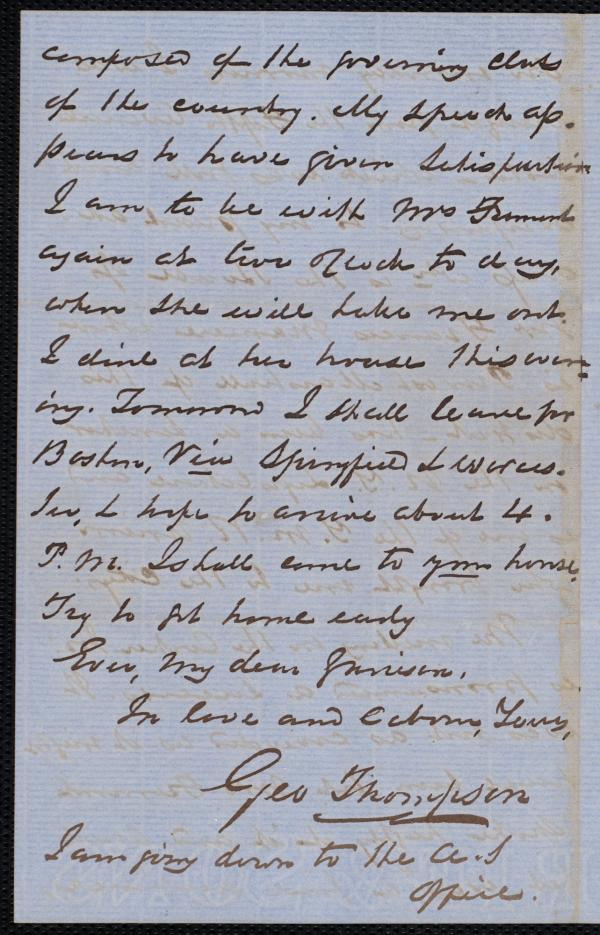 composed of the governing class
of the country. My speech ap-
pears to have given satisfaction
I am to be with Mrs Fremont
again at two o'clock to day,
when she will take me out.
I dine at her house this even=
ing. Tomorrow I shall leave for
Boston, Via Springfield & Worces-
ter, & hope to arrive about 4.
P.M. I shall come to your house.
Try to get home early
Ever, my dear Garrison,
In love and labor, Yours,
Geo Thompson
I am going down to the A.S
Office.